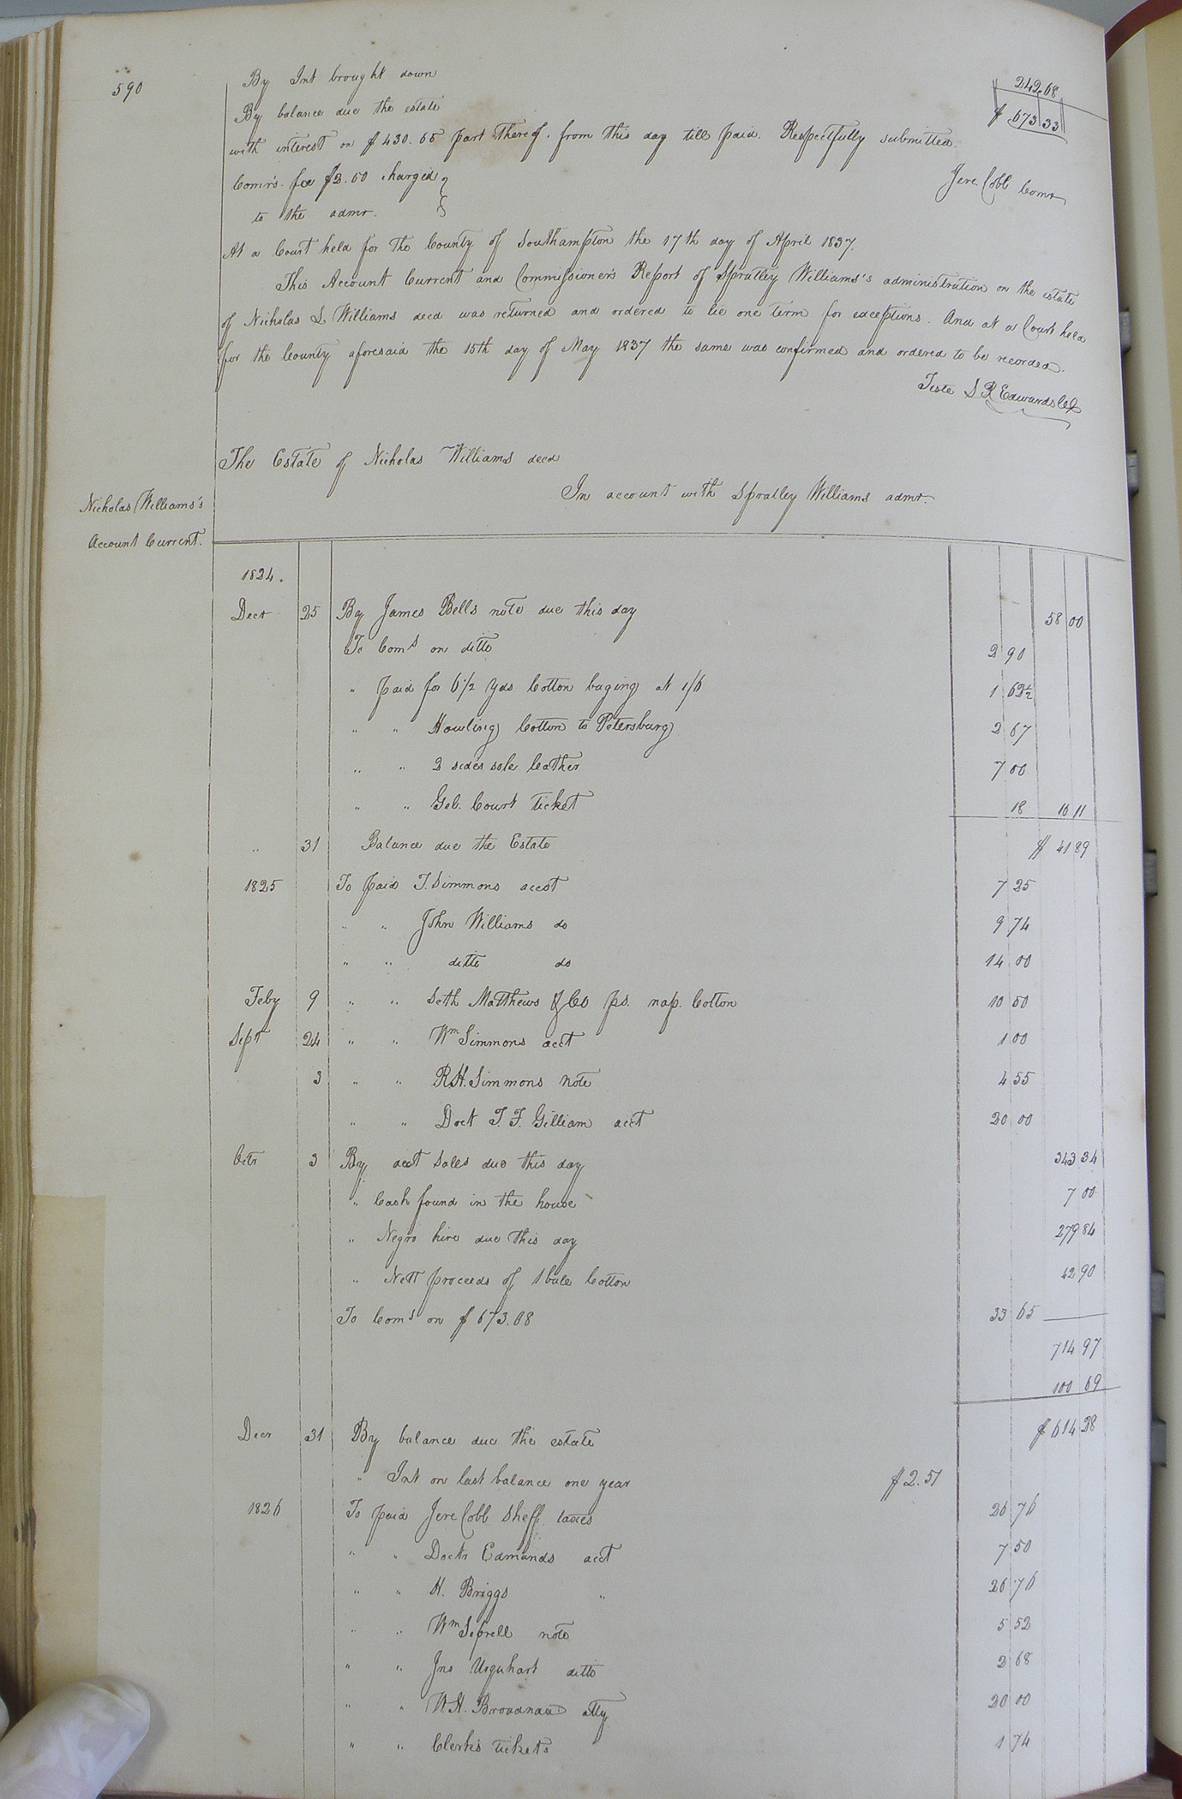 590
By Int brought down 242.68
By balance due the estate $ 673 33
with interest on $ 430.65 part thereof. from this day till paid. Respectfully submitted.
Comrs. fee $3.50 charged Jere. Cobb Comr
to the admr.
At a Court held for the County of Southampton the 17th day of April 1837.
This Account Current and Commissioners Report of Spratley Williams's administration on the estate
of Nicholas S Williams decd was returned and ordered to lie one term for exceptions. And at a Court held
for the County aforesaid the 15th day of May 1837 the same was confirmed and ordered to be recorded.
Teste S R Edwards Clk
The Estate of Nicholas Williams decd
In account with Spratley Williams admr.
Nicholas Williams's
Account Current.
1824.
Decr 25 By James Bells note due this day 58 00
To Coms on ditto 2 90
" paid for 6 1/2 yds Cotton baging at 1/6 1 62½
" " Hawling Cotton to Petersburg 2 67
" " 2 sides sole leather 7 00
" " Geb. Court Ticket 18 16 11
" 31 Balance due the Estate $ 41 89
1825 To paid T. Simmons acct 7 25
" " John Williams do 9 74
" " ditto do 14 00
Feby 9 " " Seth Matthews & Co ps. nap. Cotton 10 50
Sept 24 " " Wm Simmons acct 1 00
3 " " R.H. Simmons note 4 55
" " Doct T. F. Gilliam acct 20 00
Octr 3 By acct Sales due this day 343 34
" Cash found in the house 7 00
" Negro hire due this day 279 84
" Nett proceeds of 1 bale Cotton 42 90
To Coms on $ 673.08 33 65
714 97
100 69
Decr 31 By balance due the estate $ 614 28
" Int on last balance one year $ 2.51
1826 To paid Jere Cobb Sheff taxes 26 76
" " Doctr Edmunds acct 7 50
" " H. Briggs " 26 76
" " Wm Sebrell note 5 52
" " Jno Urquhart ditto 2 68
" " W.H. Broadnax atty 20 00
" " Clerks tickets 1 74